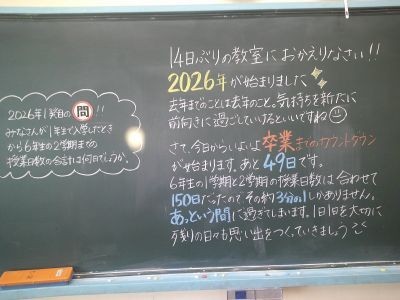 14日ぶりの教室におかえりなさい!!
2026年が始まりました
去年までのことは去年のこと。気持ちを新たに
前向きに過ごしていけるといいですね
さて、今日からいよいよ卒業までのカウントダウン
が始まります。あと49日です。
6年生の1学期と2学期の授業日数は合わせて
150日だったので その約3分の1しかありません。
あっという間に過ぎてしまいます。1日1日を大切に
残りの日々も思い出をつくっていきましょう
2026年1発目の問!!
みなさんが1年生で入学したとき
から6年生の2学期までの
授業日数の合計は何日でしょうか。